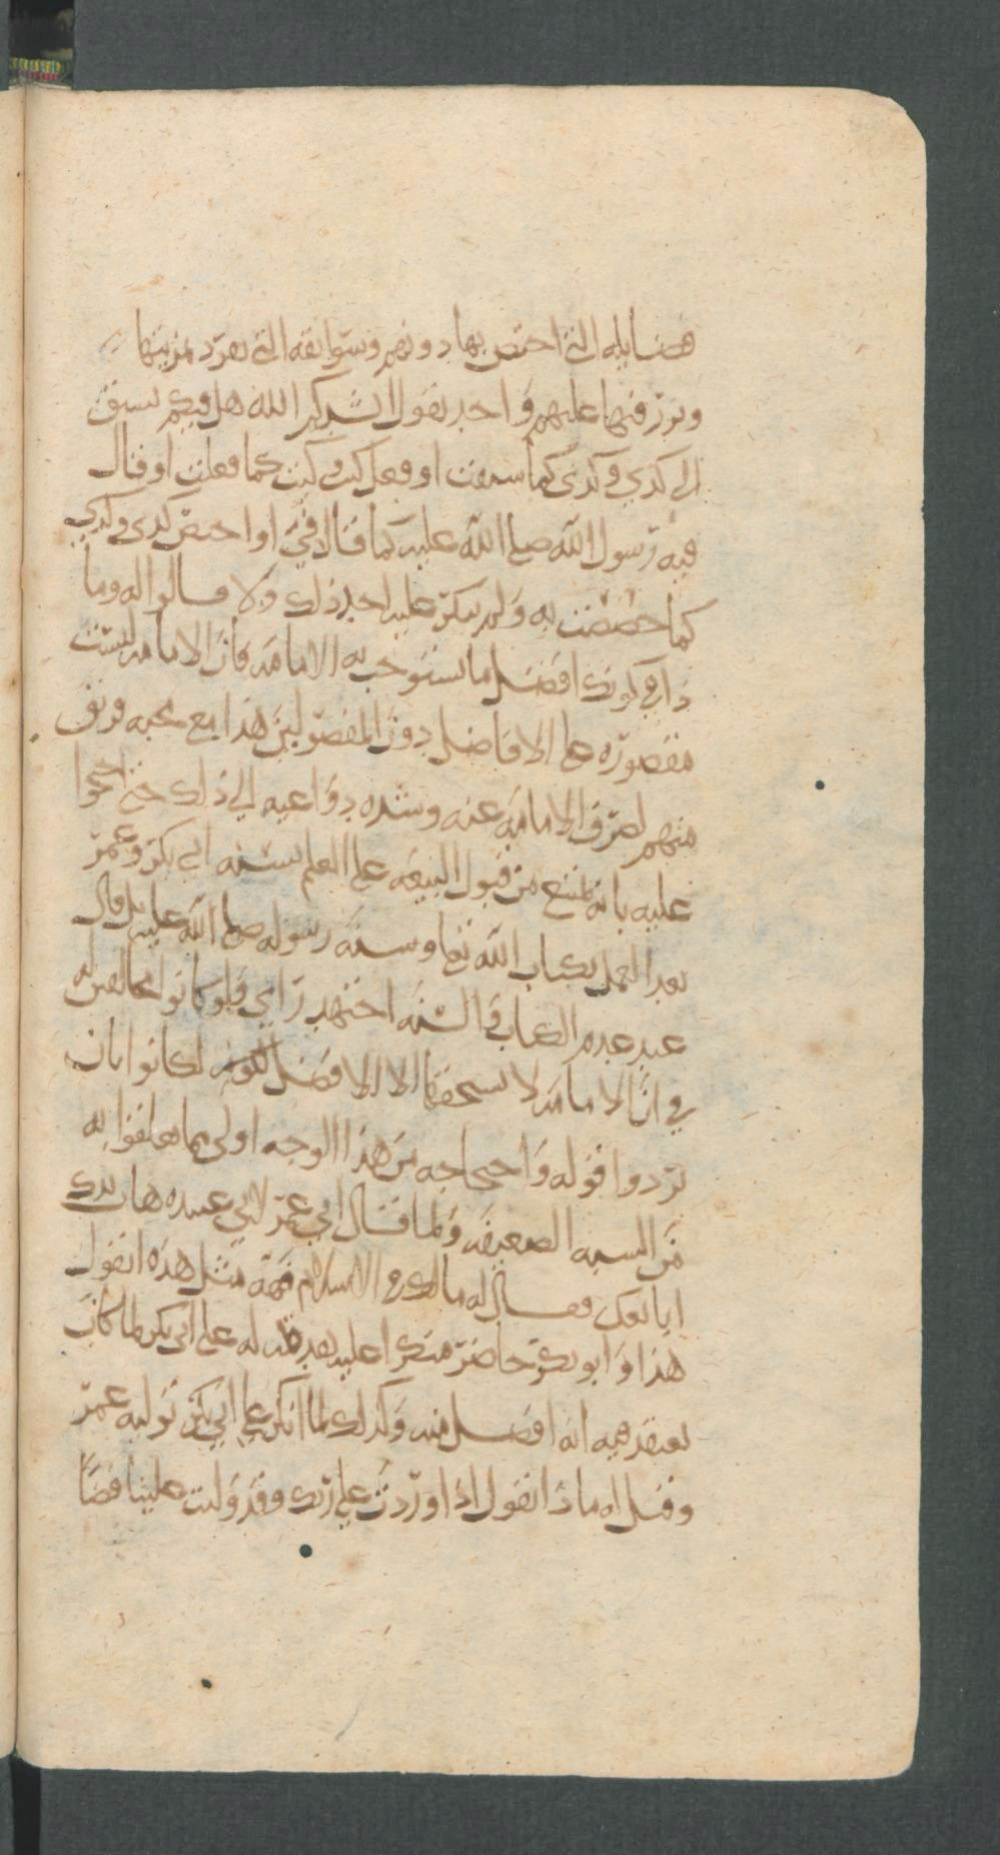 فضايله التي اختص بها دونهم وسوابقه التي تفرد بمزيتها
وبرز فيها عليهم واحد يقول انشدكم الله هل فيكم سبق
الى كذى وكذى كما سبقت او فعل كيت وكيت كما فعلت او قال
فيه رسول الله صلى الله عليه كما قال في او اختص كذى وكذى
كما خصصت به ولم ينكر عليه احد ذلك ولا قالوا له وما
ذا في كونك افضل ما يستوجب به الامامه فان الامامه ليست
مقصوره على الافاضل دون المفضولين هذا مع محبه فريق
منهم لصرف الامامه عنه وشده دواعيه الى ذلك حتى احتجوا
عليه بانه يمتنع من قبول البيعه على العلم بسنه ابي بكر وعمر
بعد العمل بكتاب الله تعا وسنه رسوله صلى الله عليه بل قال
عند عدم الكتاب والسنه اجتهد رايي فلو كانوا مخالفين له
في ان الامامه لا يستحقها الا الافضل لكانوا بان
يردوا قوله واحتجاجه من هذا الوجه اولى مما تعلقوا به
من الشبه الضعيفه ولما قال ابي عمر لابي عبيده هات يدك
ابايعك فقال له مالك في الاسلام فهة مثل هذه اتقول
هذا وابو بكر حاضر منكرا عليه تقدمه له على ابي بكر لما كان
يعتقد فيه انه افضل منه وكذلك لما انكر على ابي بكر توليه عمر
وقيل له ماذا تقول اذا وردت على ربك وقد وليت علينا فضا